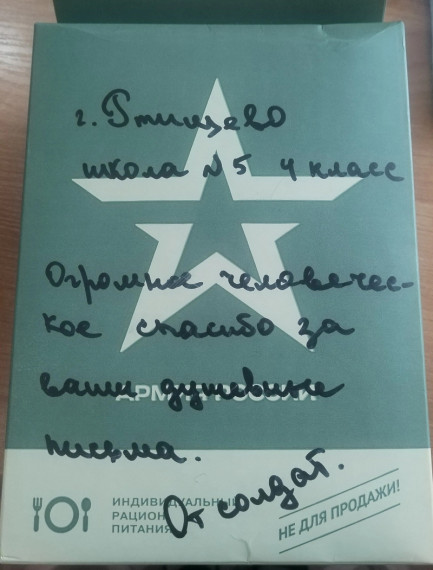 г. Ртищево
школа №5 4 класс
Огромное человечес-
кое спасибо за
ваши душевные
АРМИЯ РОССИИ
письма.
От солдат.
ИНДИВИДУАЛЬНЫЙ
РАЦИОН
ПИТАНИЯ
НЕ ДЛЯ ПРОДАЖИ!